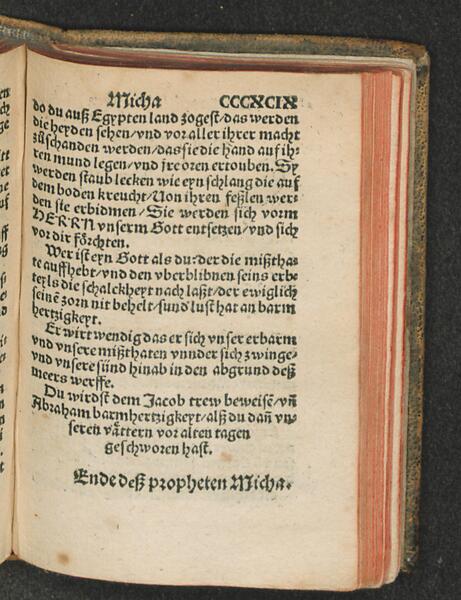 Micha CCCXCIX
do du auß Egypten land zogest/das werden
die heyden sehen/vnd vor aller ihrer macht
zůschanden werden/das sie die hand auf ih-
ren mund legen/vnd jre oren ertouben. Sy
werden staub lecken wie eyn schlang die auf
dem boden kreucht/Von ihren feßlen wer-
den sie erbidmen/Sie werden sich vorm
HERRN vnserm Gott entsetzen/vnd sich
vor dir förchten.
Wer ist eyn Gott als du: der die mißtha-
te auffhebt/vnd den vberblibnen seins erb-
teyls die schalckheyt nach laßt/der ewiglich
seinē zorn nit behelt/sund lust hat an barm
hertzigkeyt.
Er wirt wendig das er sich vnser erbarm
vnd vnsere mißthaten vnnder sich zwinge/
vnd vnsere sünd hinab in den abgrund deß
meers werffe.
Du wirdst dem Jacob trew beweisē/vñ
Abraham barmhertzigkeyt/alß du dañ vn-
seren vättern vor alten tagen
geschworen hast.
Ende deß propheten Micha.